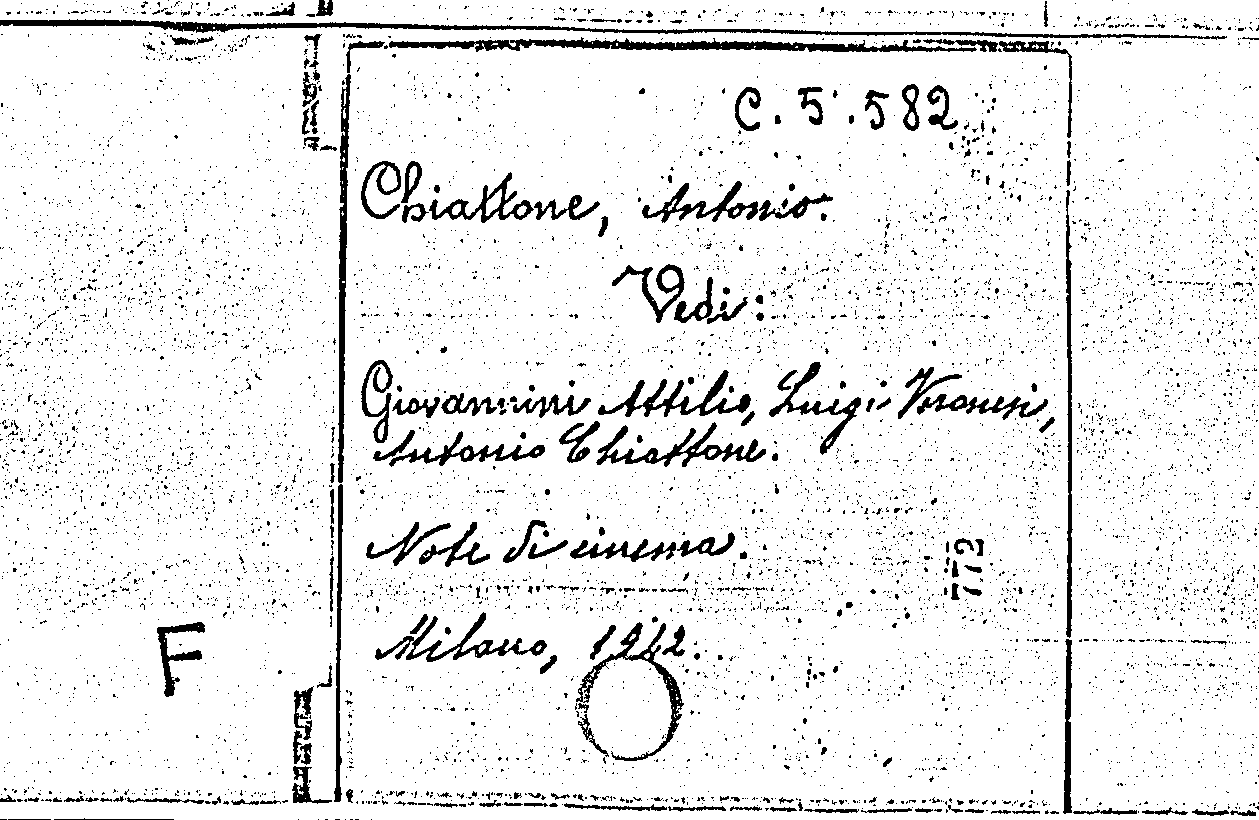 C. 5. 582
Chiattone, Antonio.
Vedi:
Giovannini Attilio, Luigi Veronesi,
Antonio Chiattone.
Note di cinema.
772
Milano, 1942.
F